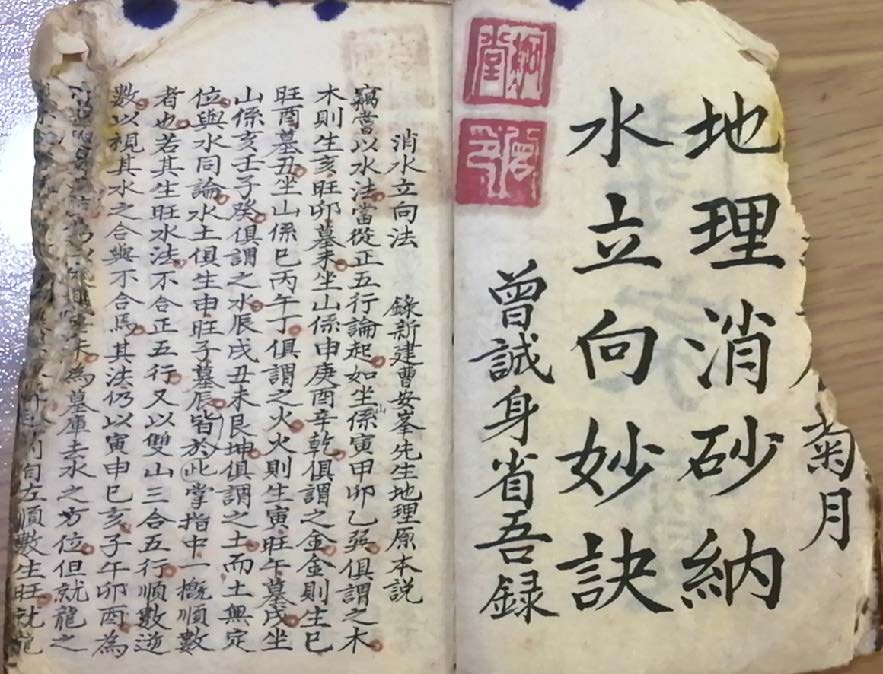 菊月
地理消砂納
水立向妙訣
曾誠身省吾錄
消水立向法　錄新建曹安峯先生地理原本説
竊嘗以水法當從正五行論起如坐係寅甲卯乙巽俱謂之木
木則生亥旺卯墓未坐山係申庚酉辛乾俱謂之金金則生巳
旺酉墓丑坐山係巳丙午丁俱謂之火火則生寅旺午墓戌坐
山係亥壬子癸俱謂之水辰戌丑未艮坤俱謂之土而土無定
位與水同論水土俱生申旺子墓辰皆於此掌指中一概順數
者也若其生旺水法不合正五行又以雙山三合五行順數逆
數以視其水之合與不合焉其法仍以寅申巳亥子午卯酉為
未為墓庫去水之方位但就龍之
左順數生旺就龍